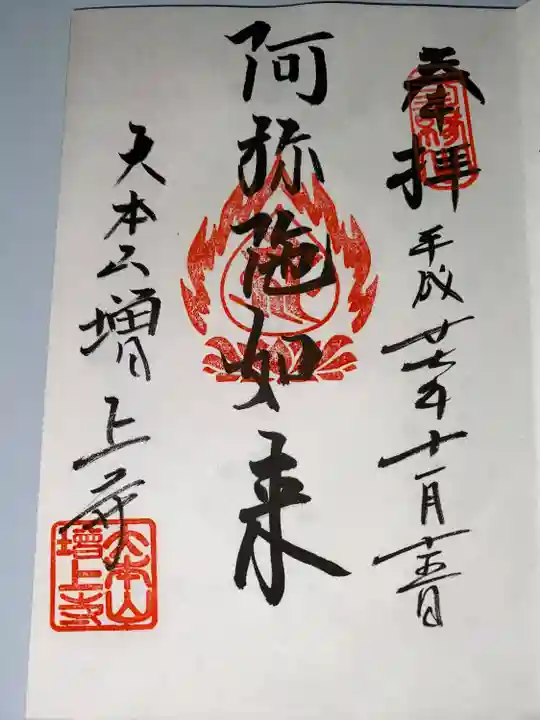 奉拝
平成廿七年十一月十五日
阿弥陀如来
大本山増上寺
大本山
増上寺